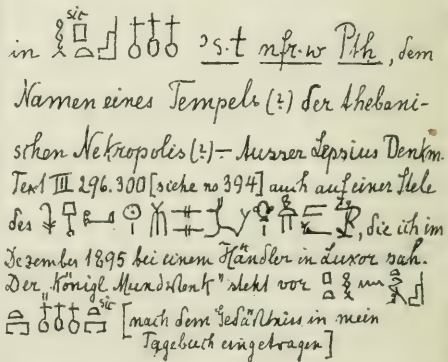 sic
in 𓎛𓊪𓏏𓊨 𓄤𓄤𓄤 ꜣs.t nfr.w Ptḥ, dem
Namen eines Tempels (?) der thebani-
schen Nekropolis (?) – Ausser Lepsius Denkm.
Text III 296.300 [siehe no 394] auch auf einer Stele
des , die ich im
Dezember 1895 bei einem Händler in Luxor sah.
Der "Königl Mundschenk" steht vor um
sic [nach dem Gedächtniss in mein
Tagebuch eingetragen]